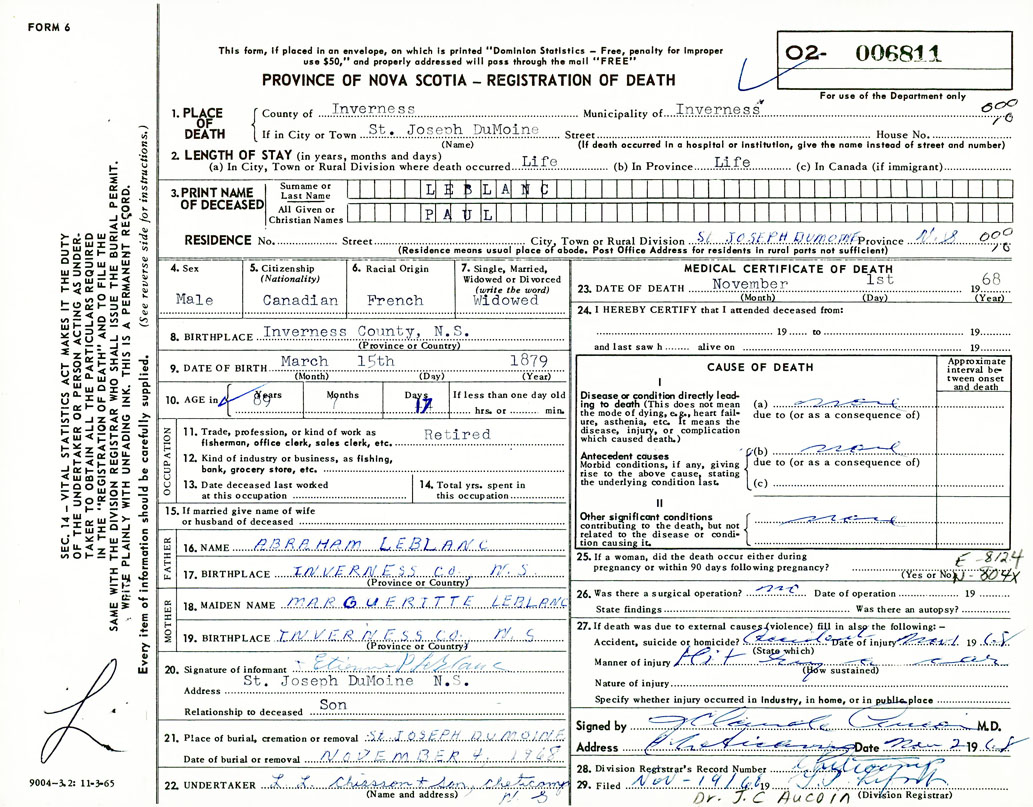 FORM 6
This form, if placed in an envelope, on which is printed "Dominion Statistics – Free, penalty for improper
use $50," and properly addressed will pass through the mail "FREE"
PROVINCE OF NOVA SCOTIA – REGISTRATION OF DEATH
O2- 006811
For use of the Department only
1. PLACE OF DEATH
County of Inverness Municipality of Inverness
If in City or Town St. Joseph DuMoine Street House No.
(Name) (If death occurred in a hospital or institution, give the name instead of street and number)
000
10
2. LENGTH OF STAY (in years, months and days)
(a) In City, Town or Rural Division where death occurred Life (b) In Province Life (c) In Canada (if immigrant)
3. PRINT NAME OF DECEASED
Surname or Last Name LEBLANC
All Given or Christian Names PAUL
RESIDENCE No. Street City, Town or Rural Division ST JOSEPH DUMOINE Province N.S
(Residence means usual place of abode. Post Office Address for residents in rural parts not sufficient)
000
10
4. Sex
Male
5. Citizenship
(Nationality)
Canadian
6. Racial Origin
French
7. Single, Married,
Widowed or Divorced
(write the word)
Widowed
8. BIRTHPLACE Inverness County, N.S.
(Province or Country)
9. DATE OF BIRTH March 15th 1879
(Month) (Day) (Year)
10. AGE in Years 89 Months 7 Days 17 If less than one day old
hrs. or min.
OCCUPATION
11. Trade, profession, or kind of work as Retired
fisherman, office clerk, sales clerk, etc.
12. Kind of industry or business, as fishing,
bank, grocery store, etc.
13. Date deceased last worked
at this occupation
14. Total yrs. spent in
this occupation
15. If married give name of wife
or husband of deceased
FATHER
16. NAME ABRAHAM LEBLANC
17. BIRTHPLACE INVERNESS CO. N.S.
(Province or Country)
MOTHER
18. MAIDEN NAME MARGUERITTE LEBLANC
19. BIRTHPLACE INVERNESS CO, N.S
(Province or Country)
20. Signature of informant
Address St. Joseph DuMoine N.S.
Relationship to deceased Son
21. Place of burial, cremation or removal ST JOSEPH DUMOINE
Date of burial or removal NOVEMBER 4, 1968
22. UNDERTAKER L. L. Chiasson + Son, Cheticamp
(Name and address) N S
MEDICAL CERTIFICATE OF DEATH
23. DATE OF DEATH November 1st 1968
(Month) (Day) (Year)
24. I HEREBY CERTIFY that I attended deceased from:
19 to 19
and last saw h alive on 19
CAUSE OF DEATH
Approximate interval between onset and death
I
Disease or condition directly leading to death (This does not mean
the mode of dying, e.g., heart failure, asthenia, etc. It means the
disease, injury, or complication
which caused death.)
(a) none
due to (or as a consequence of)
Antecedent causes
Morbid conditions, if any, giving
rise to the above cause, stating
the underlying condition last.
(b) none
due to (or as a consequence of)
(c)
II
Other significant conditions
contributing to the death, but not
related to the disease or condition causing it.
none
25. If a woman, did the death occur either during
pregnancy or within 90 days following pregnancy?
(Yes or No)
E-8124
N-804X
26. Was there a surgical operation? no Date of operation 19
State findings Was there an autopsy?
27. If death was due to external causes (violence) fill in also the following:–
Accident, suicide or homicide? Accident Date of injury Nov 1 1968
(State which)
Manner of injury Hit by a car
(How sustained)
Nature of injury
Specify whether injury occurred in Industry, in home, or in public place
Signed by J Claude Aucoin M.D.
Address Cheticamp Date Nov 2 1968
28. Division Registrar's Record Number
29. Filed Nov - 19/68 19
(Division Registrar)
Dr. J.C AUCOIN
SEC. 14 – VITAL STATISTICS ACT MAKES IT THE DUTY
OF THE UNDERTAKER OR PERSON ACTING AS UNDERTAKER TO OBTAIN ALL THE PARTICULARS REQUIRED
IN THE "REGISTRATION OF DEATH" AND TO FILE THE
SAME WITH THE DIVISION REGISTRAR WHO SHALL ISSUE THE BURIAL PERMIT.
WRITE PLAINLY WITH UNFADING INK. THIS IS A PERMANENT RECORD.
Every item of information should be carefully supplied. (See reverse side for instructions.)
9004-3.2: 11-3-65